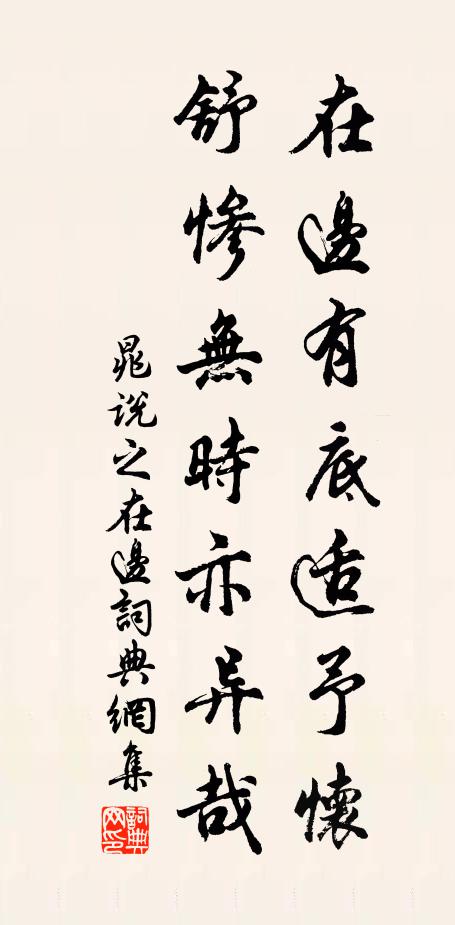 在邊有底适予懷
舒慘無時亦异哉
晁說之在邊詞典網集
詞典
网印